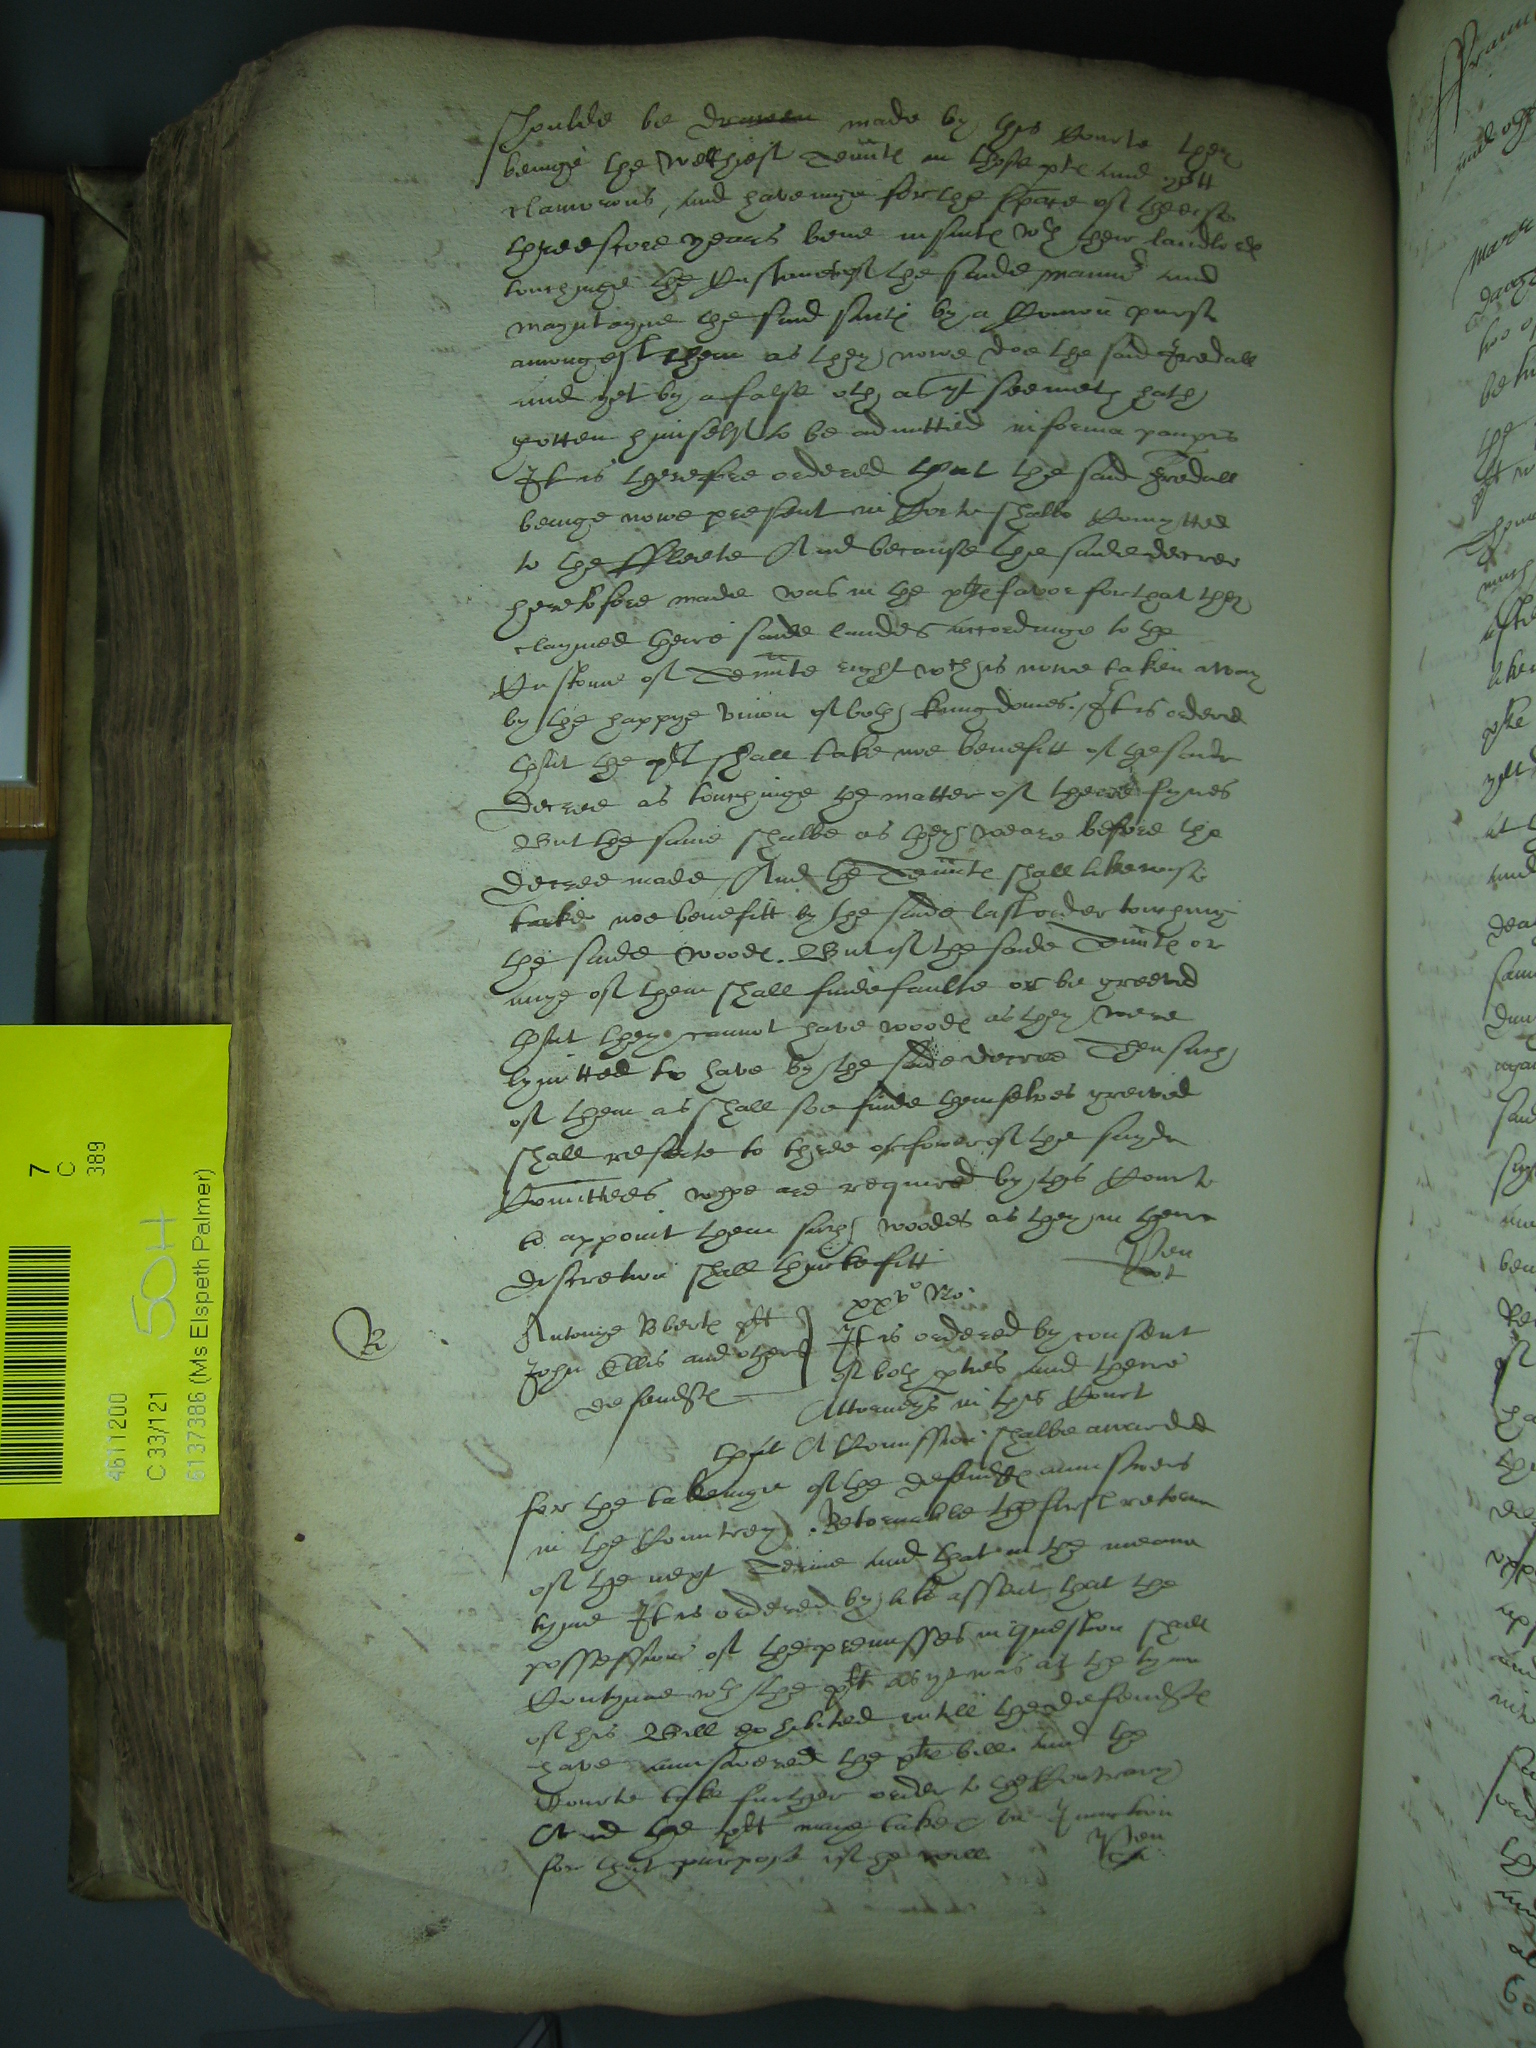 shoulde be drawen made by this Courte they
beinge the welthiest Tennts in those pts and yett
clamorous, and haveinge for the space of theis
threescore years bene in suits wth their landlords
touchinge the Custome of the saide mannor and
mayntayne the said suits by a Comon purse
amongest them as they nowe doe the said Iredall
and yet by a false oth as yt seemeth hath
gotten himself to be admitted in forma paupis
It is therefore ordered that the said Iredall
beinge nowe present in Corte shalbe Comytted
to the Fleete And because the saide decree
heretofore made was in the pltes favor for that they
claymed theire saide landes accordinge to the
Custome of Tennte right wch is nowe taken away
by the happye Union of both kingdomes. It is ordered
that the plt shall take noe benefitt of the saide
decree as touchinge the matter of theire fynes
But the same shalbe as they weare before the
decree made And the Tennts shall likewise
take noe benefitt by the saide last order touching
the saide woods. But if the saide Tennts or
anye of them shall finde faulte or be greeved
that they cannot have woods as they were
lymitted to have by the saide decree Then such
of them as shall soe finde themselves greived
shall resorte to three or fower of the sayde
Comittees whoe are required by this Courte
to appoint them such woodes as they in theire
discretion shall thinke fitt
Pen
xxvo No.
R
Antonye plt
John Ellis and others
defendts
It is ordered by consent
of both pties and theire
Attorneys in this Court
that A Comission shalbe awarded
for the takeinge of the defendts aunswers
in the Countrey. Retornable the first retorne
of the next Terme and that in the meane
tyme It is ordered by like assent that the
possession of the premisses in question shall
Contynue wth the plt as yt was at the tyme
of his Bill exhibited untill the defendts
have aunswered the pltes bill and the
Courte take further order to the Contrary
And the plt maye take an Iniunction
for that purpose if he will
Pen
7
C
389
50H
4611200
C 33/121
6137386 (Ms Elspeth Palmer)